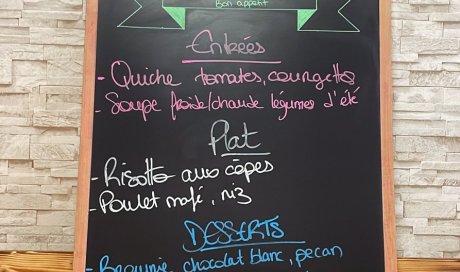 Bon appétit
Entrées
- Quiche tomates, courgettes
- Soupe froide/chaude légumes d'été
Plat
- Risotto aux cèpes
- Poulet mafé, riz
DESSERTS
- Brownie, chocolat blanc, pecan